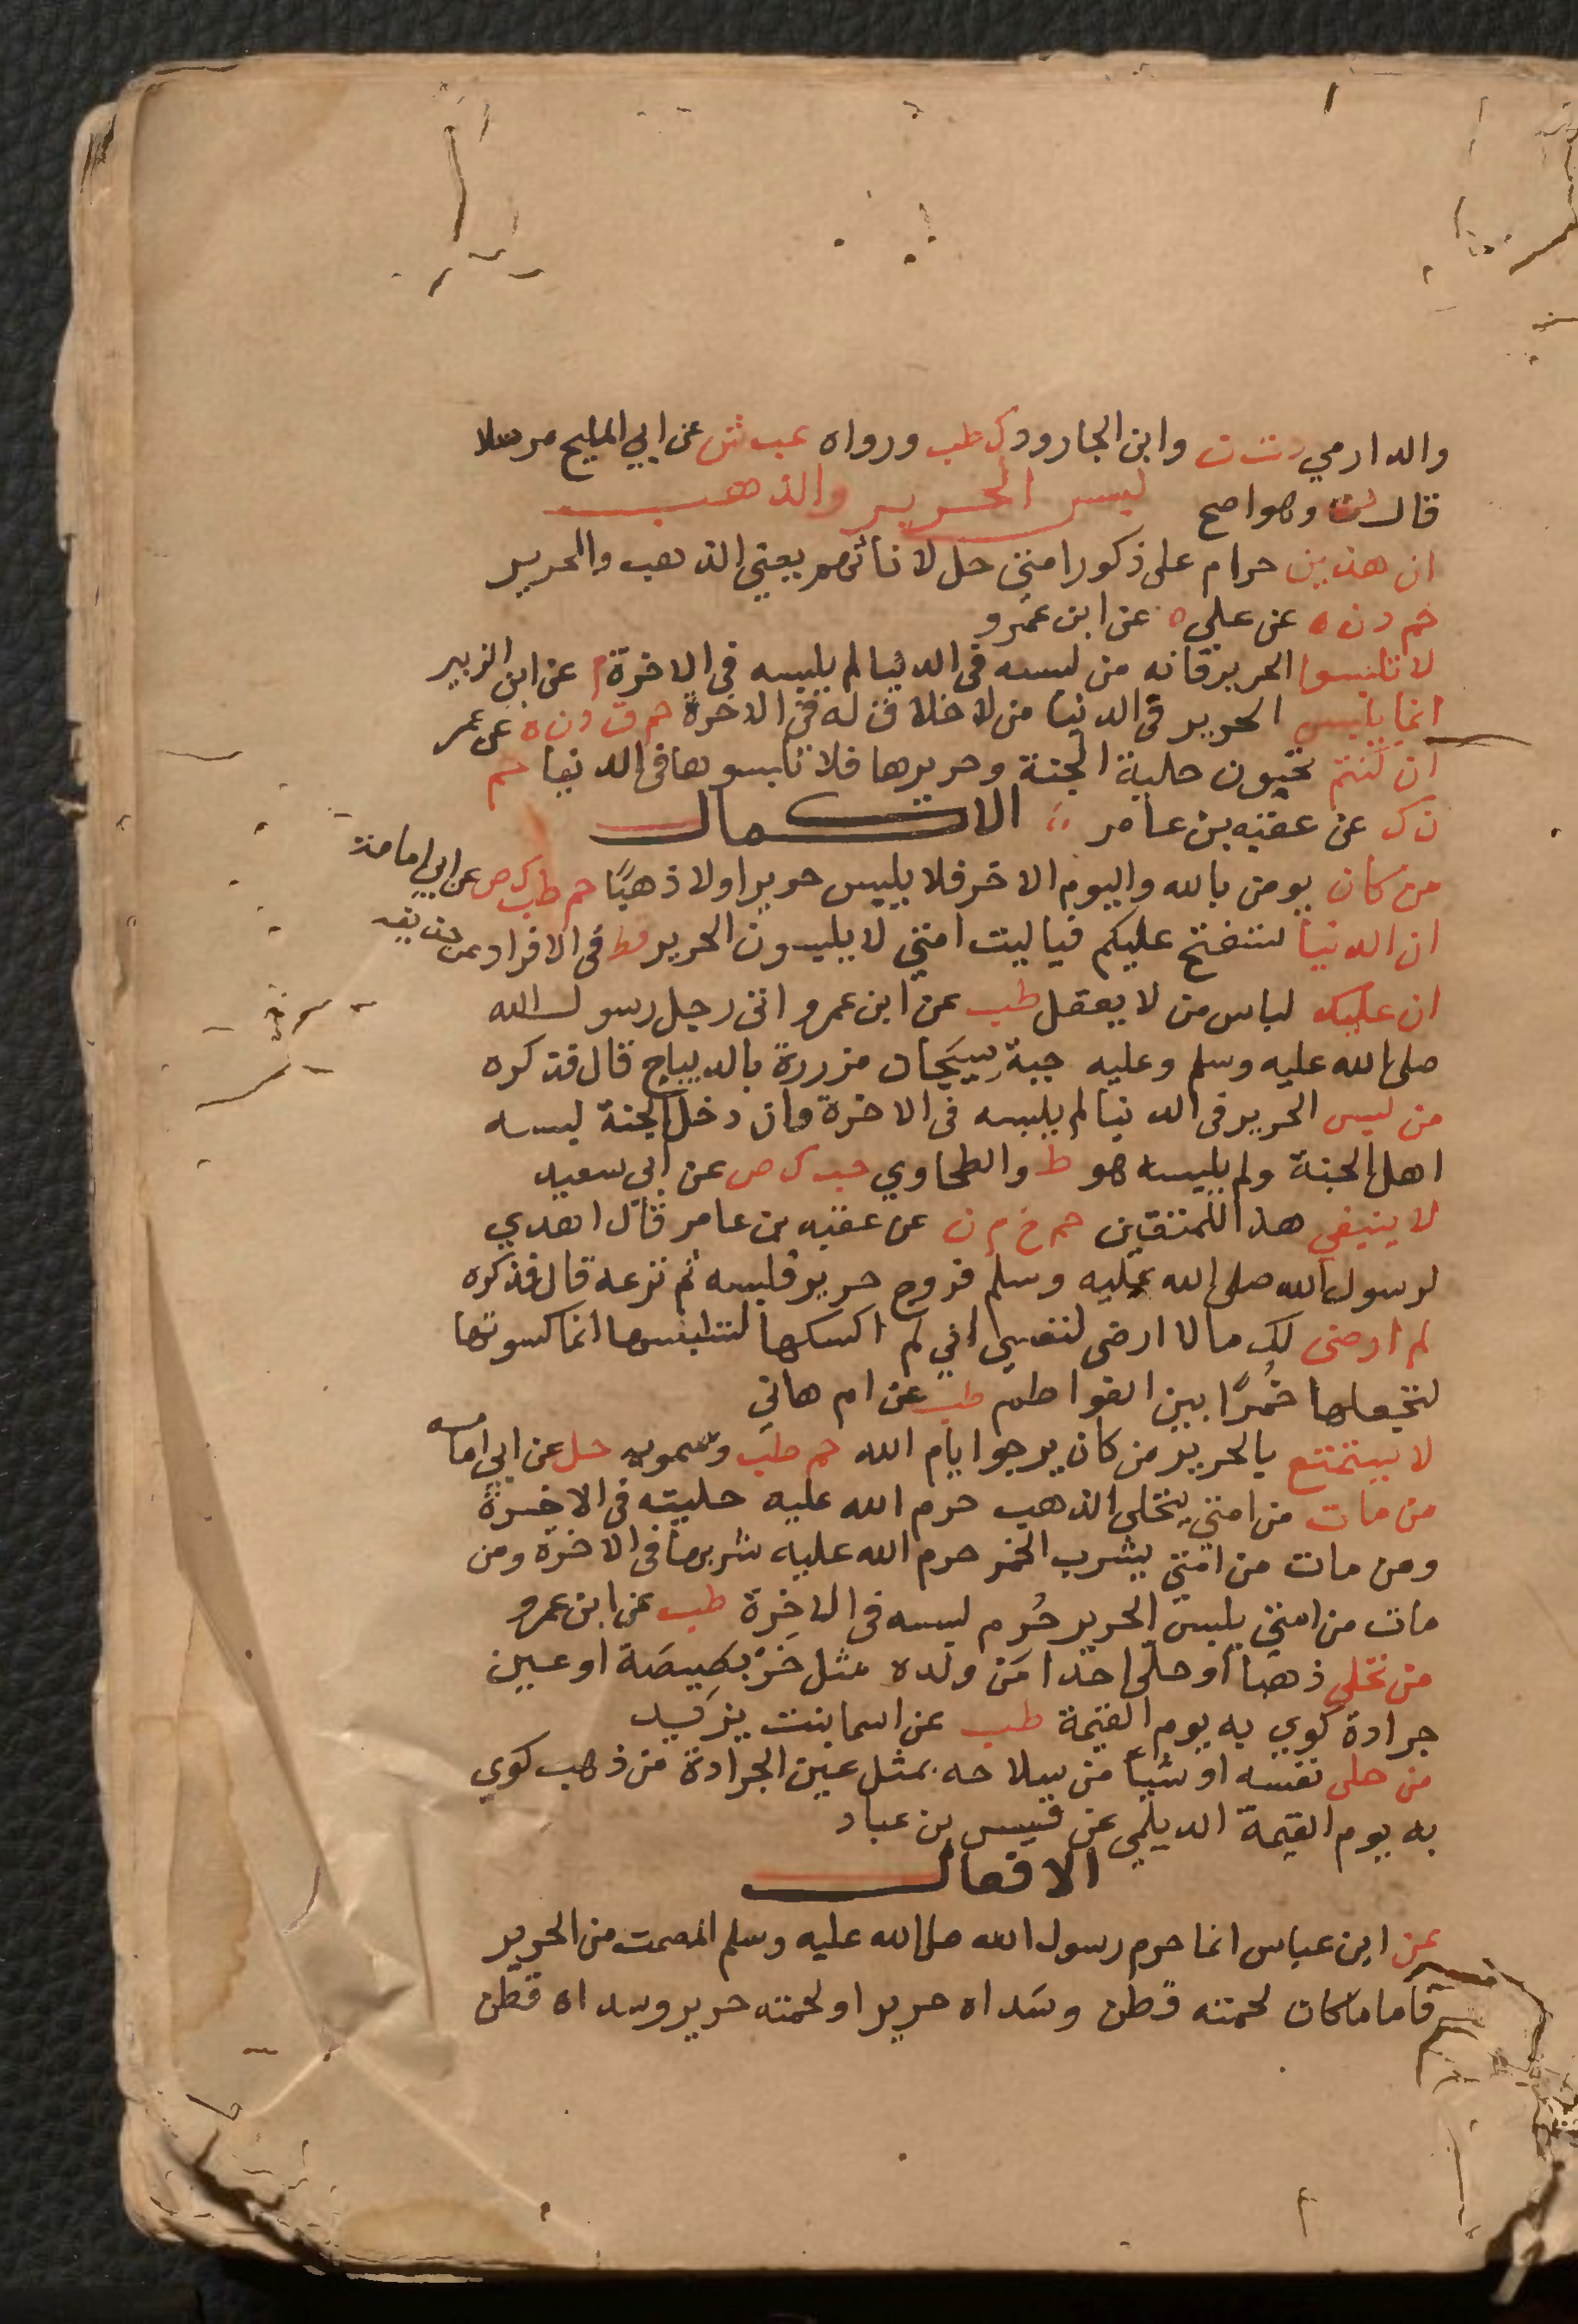 والدارمي د ت ن وابن الجارود ك طب ورواه عب ش عن ابي المليح مرسلا
قال ت وهو اصح لبس الحرير والذهب
ان هذين حرام على ذكور امتي حل لاناثهم يعني الذهب والحرير
حم د ن ه عن علي ه عن ابن عمرو
لا تلبسوا الحرير فانه من لبسه في الدنيا لم يلبسه في الاخرة م عن ابن الزبير
انما يلبس الحرير في الدنيا من لا خلاق له في الاخرة حم ق د ن ه عن عمر
ان كنتم تحبون حلية الجنة وحريرها فلا تلبسوها في الدنيا حم
ن ك عن عقبه بن عامر الاكمال
من كان يومن بالله واليوم الاخر فلا يلبس حريرا ولا ذهبًا حم طب ك ص عن ابي امامة
ان الدنيا ستفتح عليكم فيا ليت امتي لا يلبسون الحرير قط في الافراد عن حذيفه
ان عليك لباس من لا يعقل طب عن ابن عمرو اتى رجل رسول الله
صلى الله عليه وسلم وعليه جبة سيجان مزررة بالديباج قال فذكره
من لبس الحرير في الدنيا لم يلبسه في الاخرة وان دخل الجنة لبسه
اهل الجنة ولم يلبسه هو ط والطحاوي حب ك ص عن ابي سعيد
لا ينبغي هذا للمتقين حم خ م ن عن عقبه بن عامر قال اهدي
لرسول الله صلى الله عليه وسلم فروج حرير فلبسه ثم نزعه قال فذكره
لم ارضى لك مالا ارضى لنفسي اني لم اكسكها لتلبسها انما كسوتها
لتجعلها خُمرًا بين الفواطم طب عن ام هاني
لا يستمتع بالحرير من كان يرجوا ايام الله حم طب وسمويه حل عن ابي امامه
من مات من امتي يتحلى الذهب حرم الله عليه حليته في الاخرة
ومن مات من امتي يشرب الخمر حرم الله عليه شربها في الاخرة ومن
مات من امتي يلبس الحرير حُرم لبسه في الاخرة طب عن ابن عمرو
من تحلى ذهبا او حلى احدا من ولده مثل خَرْبَصِيصَة او عين
جرادة كوي به يوم القيمة طب عن اسما بنت يزيد
من حلى نفسه او شيأ من سلاحه بمثل عين الجرادة من ذهب كوي
به يوم القيمة الديلمي عن قيس بن عباد
الافعال
عن ابن عباس انما حرم رسول الله صلى الله عليه وسلم المصمت من الحرير
فاما ما كان لحمته قطن وسَداه حرير او لحمته حرير وسداه قطن